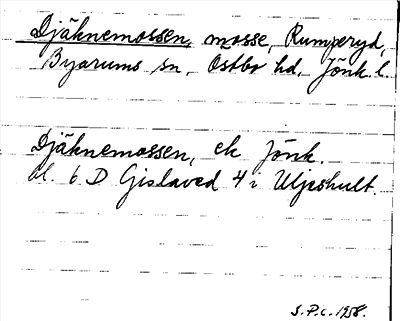 Djäknemossen, mosse, Rumperyd,
Byarums sn, Östbo hd, Jönk. l.
Djäknemossen, ek Jönk.
bl. 6 D Gislaved 4 i Uljeshult.
S.P.C. 1958.